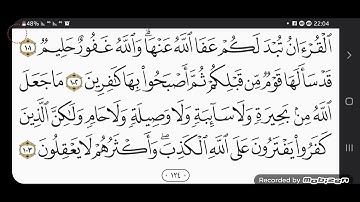 48% 22:04
ٱلْقُرْءَانُ تُبْدَ لَكُمْ عَفَا ٱللَّهُ عَنْهَا ۗ وَٱللَّهُ غَفُورٌ حَلِيمٌ ١٠١
قَدْ سَأَلَهَا قَوْمٌ مِّن قَبْلِكُمْ ثُمَّ أَصْبَحُوا۟ بِهَا كَٰفِرِينَ ١٠٢ مَا جَعَلَ
ٱللَّهُ مِنۢ بَحِيرَةٍ وَلَا سَآئِبَةٍ وَلَا وَصِيلَةٍ وَلَا حَامٍ وَلَٰكِنَّ ٱلَّذِينَ
كَفَرُوا۟ يَفْتَرُونَ عَلَى ٱللَّهِ ٱلْكَذِبَ ۖ وَأَكْثَرُهُمْ لَا يَعْقِلُونَ ١٠٣
١٢٤
Recorded by
Mobizen